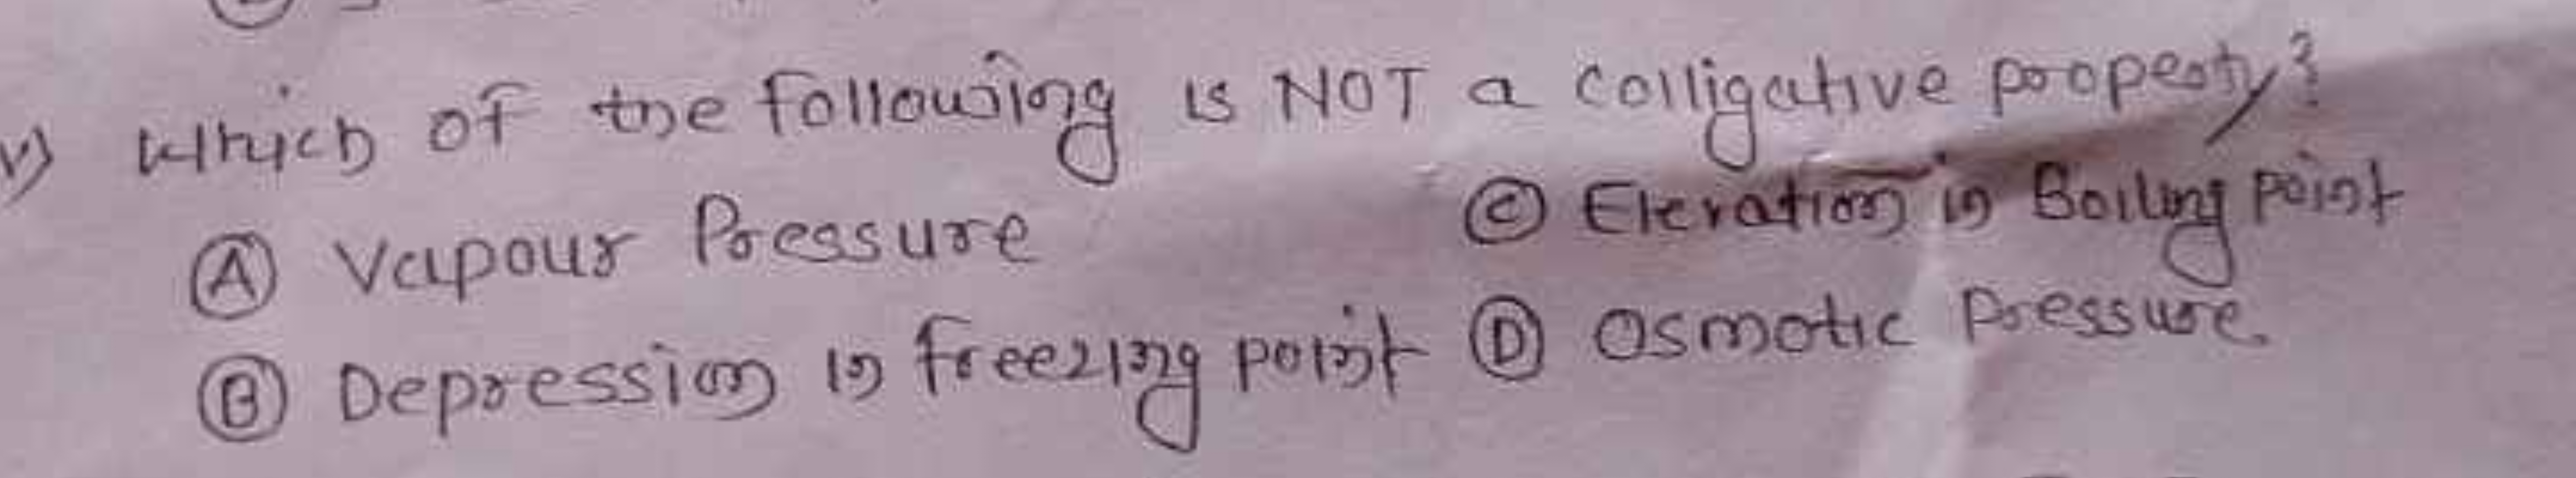 v) Which of the following is NOT a colligative property?
(A) Vapour Pressure (C) Elevation in Boiling point
(B) Depression in freezing point (D) Osmotic Pressure